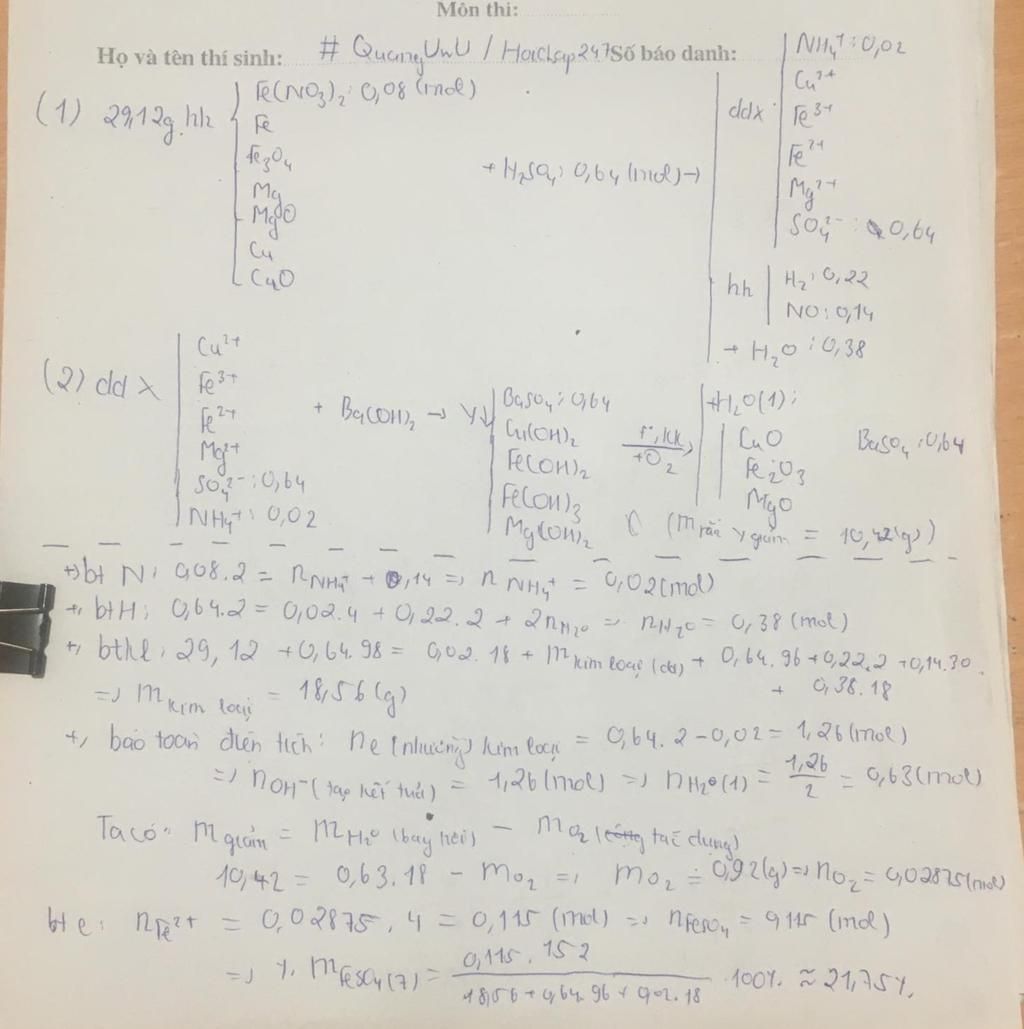 Môn thi:
Họ và tên thí sinh: # QuangUwU / Hoidap247 Số báo danh:
(1) 29,12g hh
Fe(NO3)2: 0,08 (mol)
Fe
Fe3O4
Mg
MgO
Cu
CuO
+ H2SO4: 0,64 (mol) →
ddX
NH4+: 0,02
Cu2+
Fe3+
Fe2+
Mg2+
SO4 2-: 0,64
hh
H2: 0,22
NO: 0,14
+ H2O: 0,38
(2) dd X
Cu2+
Fe3+
Fe2+
Mg2+
SO4 2-: 0,64
NH4+: 0,02
+ Ba(OH)2 → Y↓
BaSO4: 0,64
Cu(OH)2
Fe(OH)2
Fe(OH)3
Mg(OH)2
t°, KK
+O2
+H2O(1);
CuO
Fe2O3
MgO
BaSO4: 0,64
(m rắn Y giảm = 10,42(g))
+) bt N: 0,08.2 = nNH4+ + 0,14 => nNH4+ = 0,02(mol)
+, bt H: 0,64.2 = 0,02.4 + 0,22.2 + 2nH2O => nH2O = 0,38 (mol)
+, btkl: 29,12 + 0,64.98 = 0,02.18 + m kim loại (dd) + 0,64.96 + 0,22.2 + 0,14.30
+ 0,38.18
=> m kim loại = 18,56 (g)
+, bảo toàn điện tích: ne (nhường) kim loại = 0,64.2 - 0,02 = 1,26 (mol)
=> nOH- (tạo kết tủa) = 1,26 (mol) => nH2O(1) = 1,26/2 = 0,63(mol)
Ta có: m giảm = mH2O (bay hơi) - mO2 (tác dụng)
10,42 = 0,63.18 - mO2 => mO2 = 0,92(g) => nO2 = 0,02875(mol)
bt e: nFe2+ = 0,02875.4 = 0,115 (mol) => nFeSO4 = 0,115 (mol)
=> % mFeSO4(7) = 0,115.152 / 18,56 + 0,64.96 + 0,02.18 .100% ≈ 21,75%.